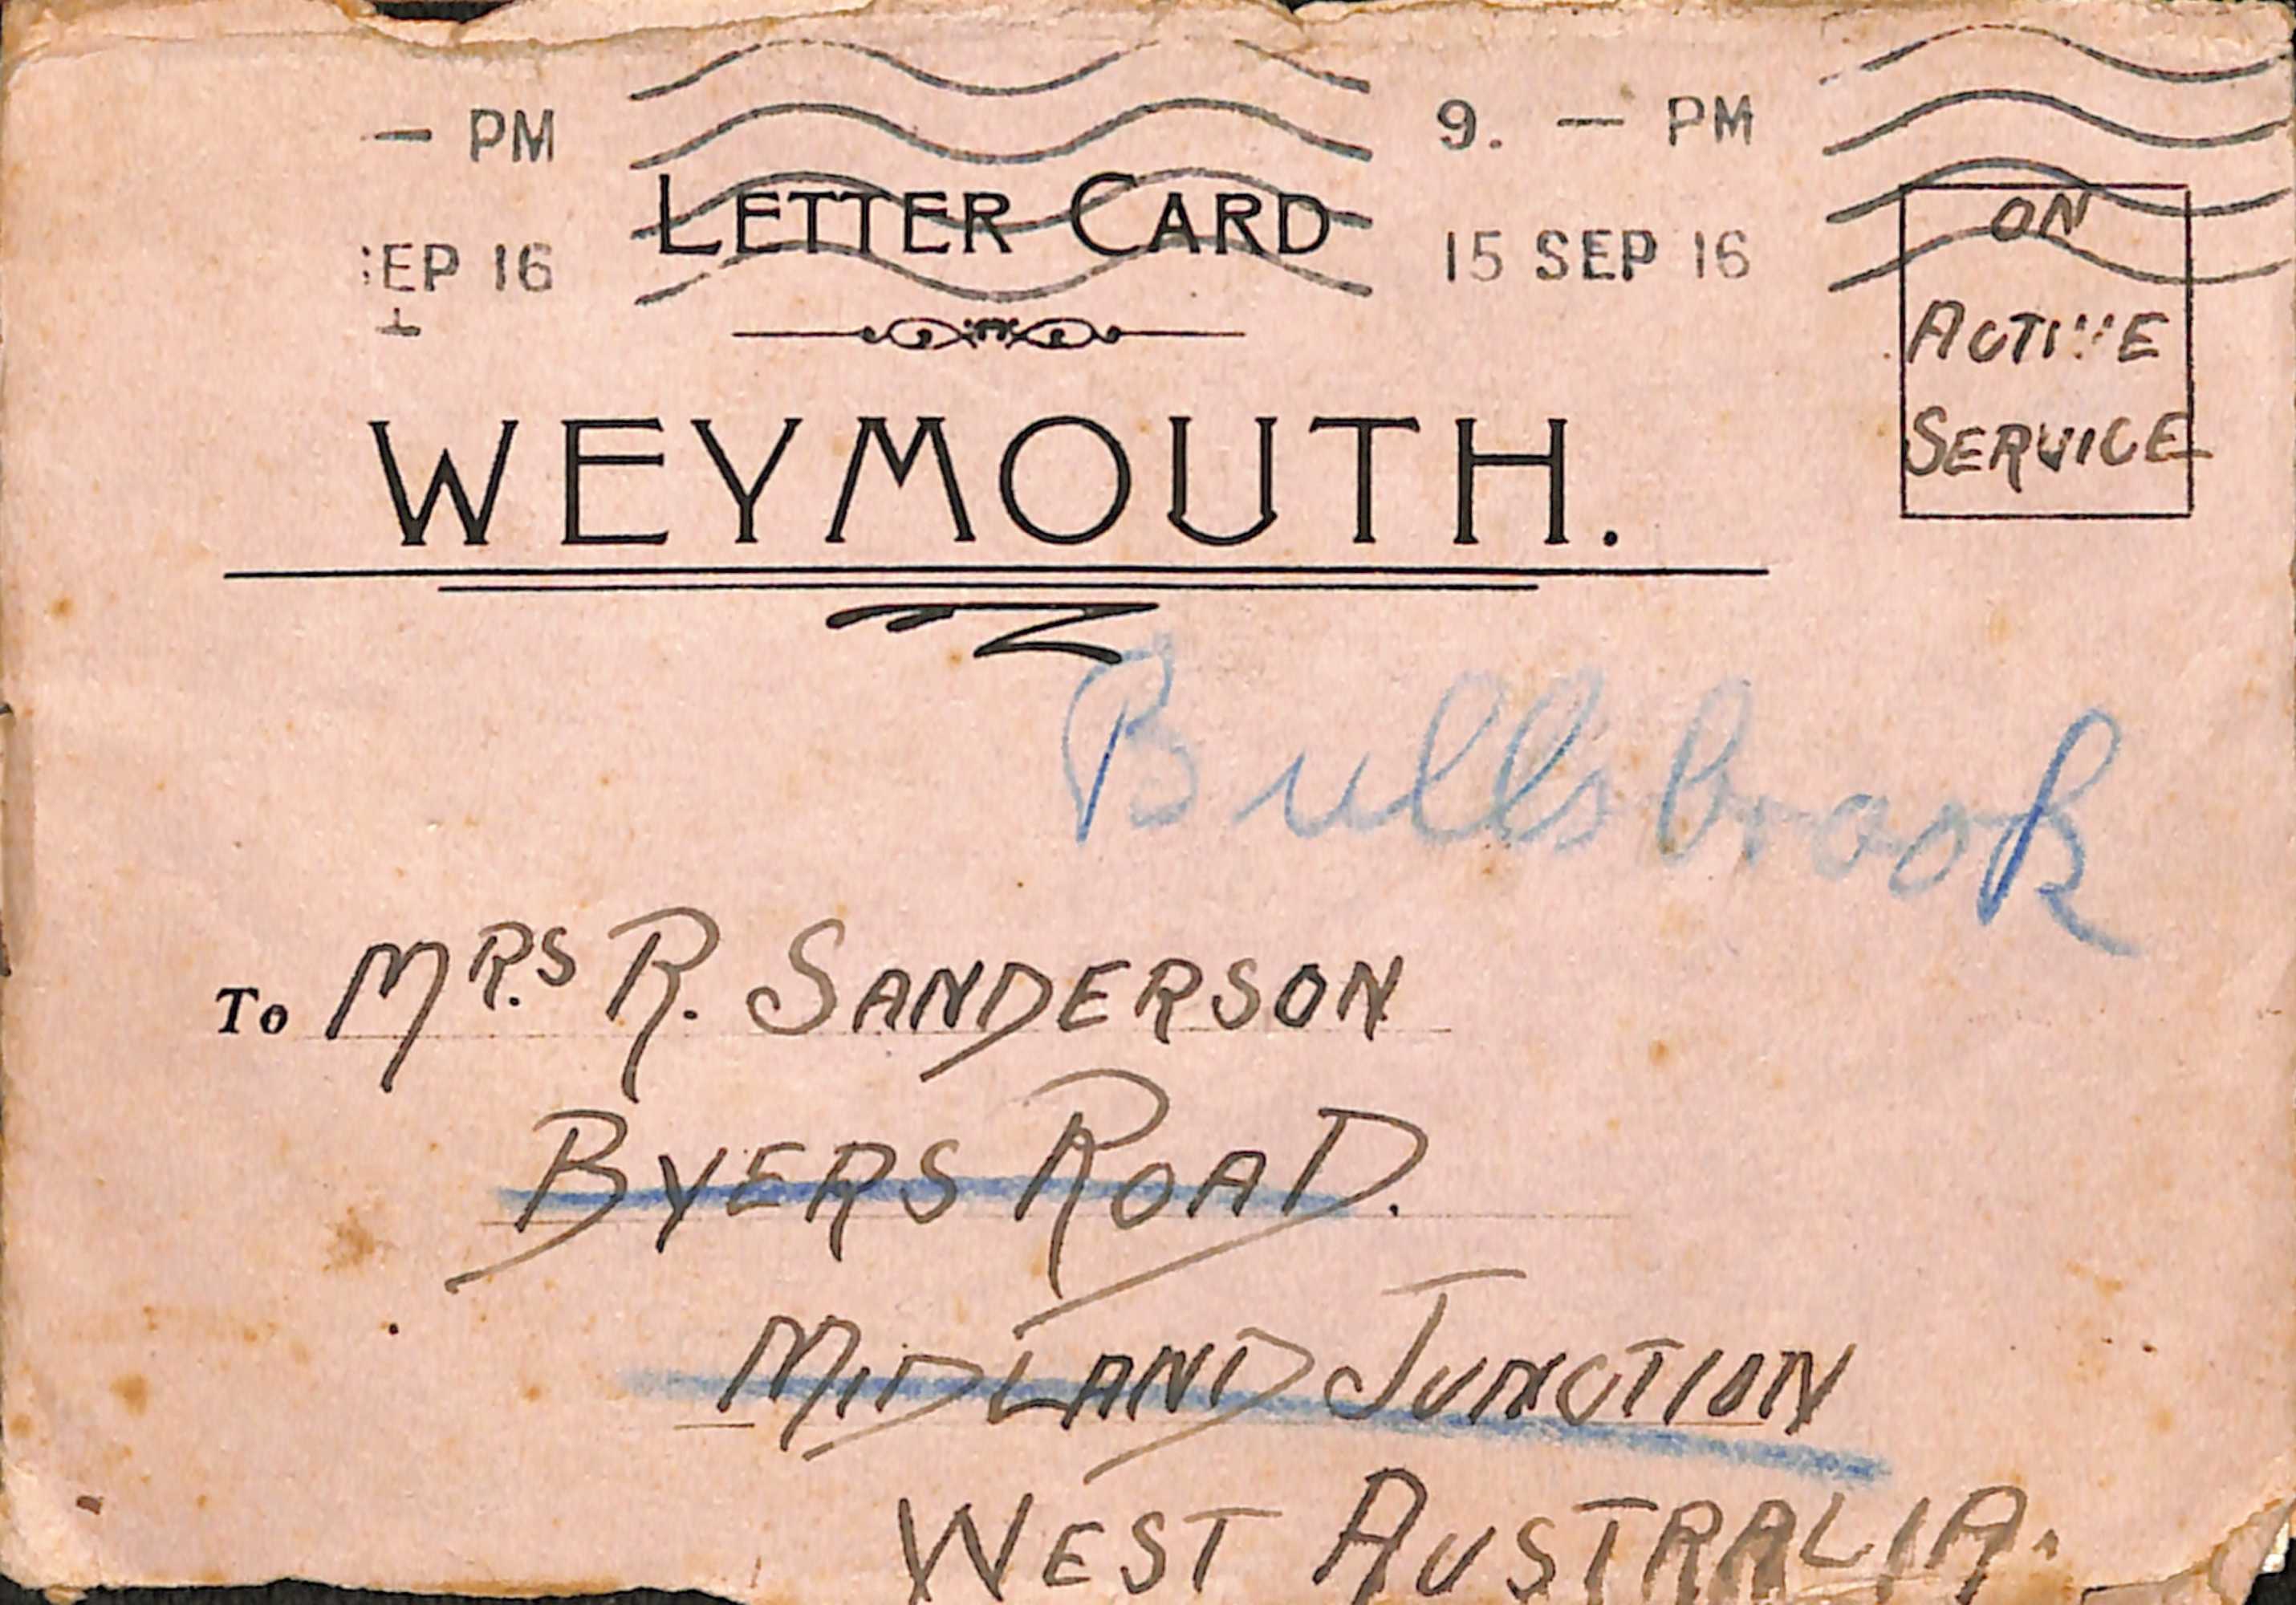 — PM 9. — PM
SEP 16 15 SEP 16
LETTER CARD
ON
ACTIVE
SERVICE
WEYMOUTH.
Bullsbrook
To MRS R. SANDERSON
BYERS ROAD.
MIDLAND JUNCTION
WEST AUSTRALIA.